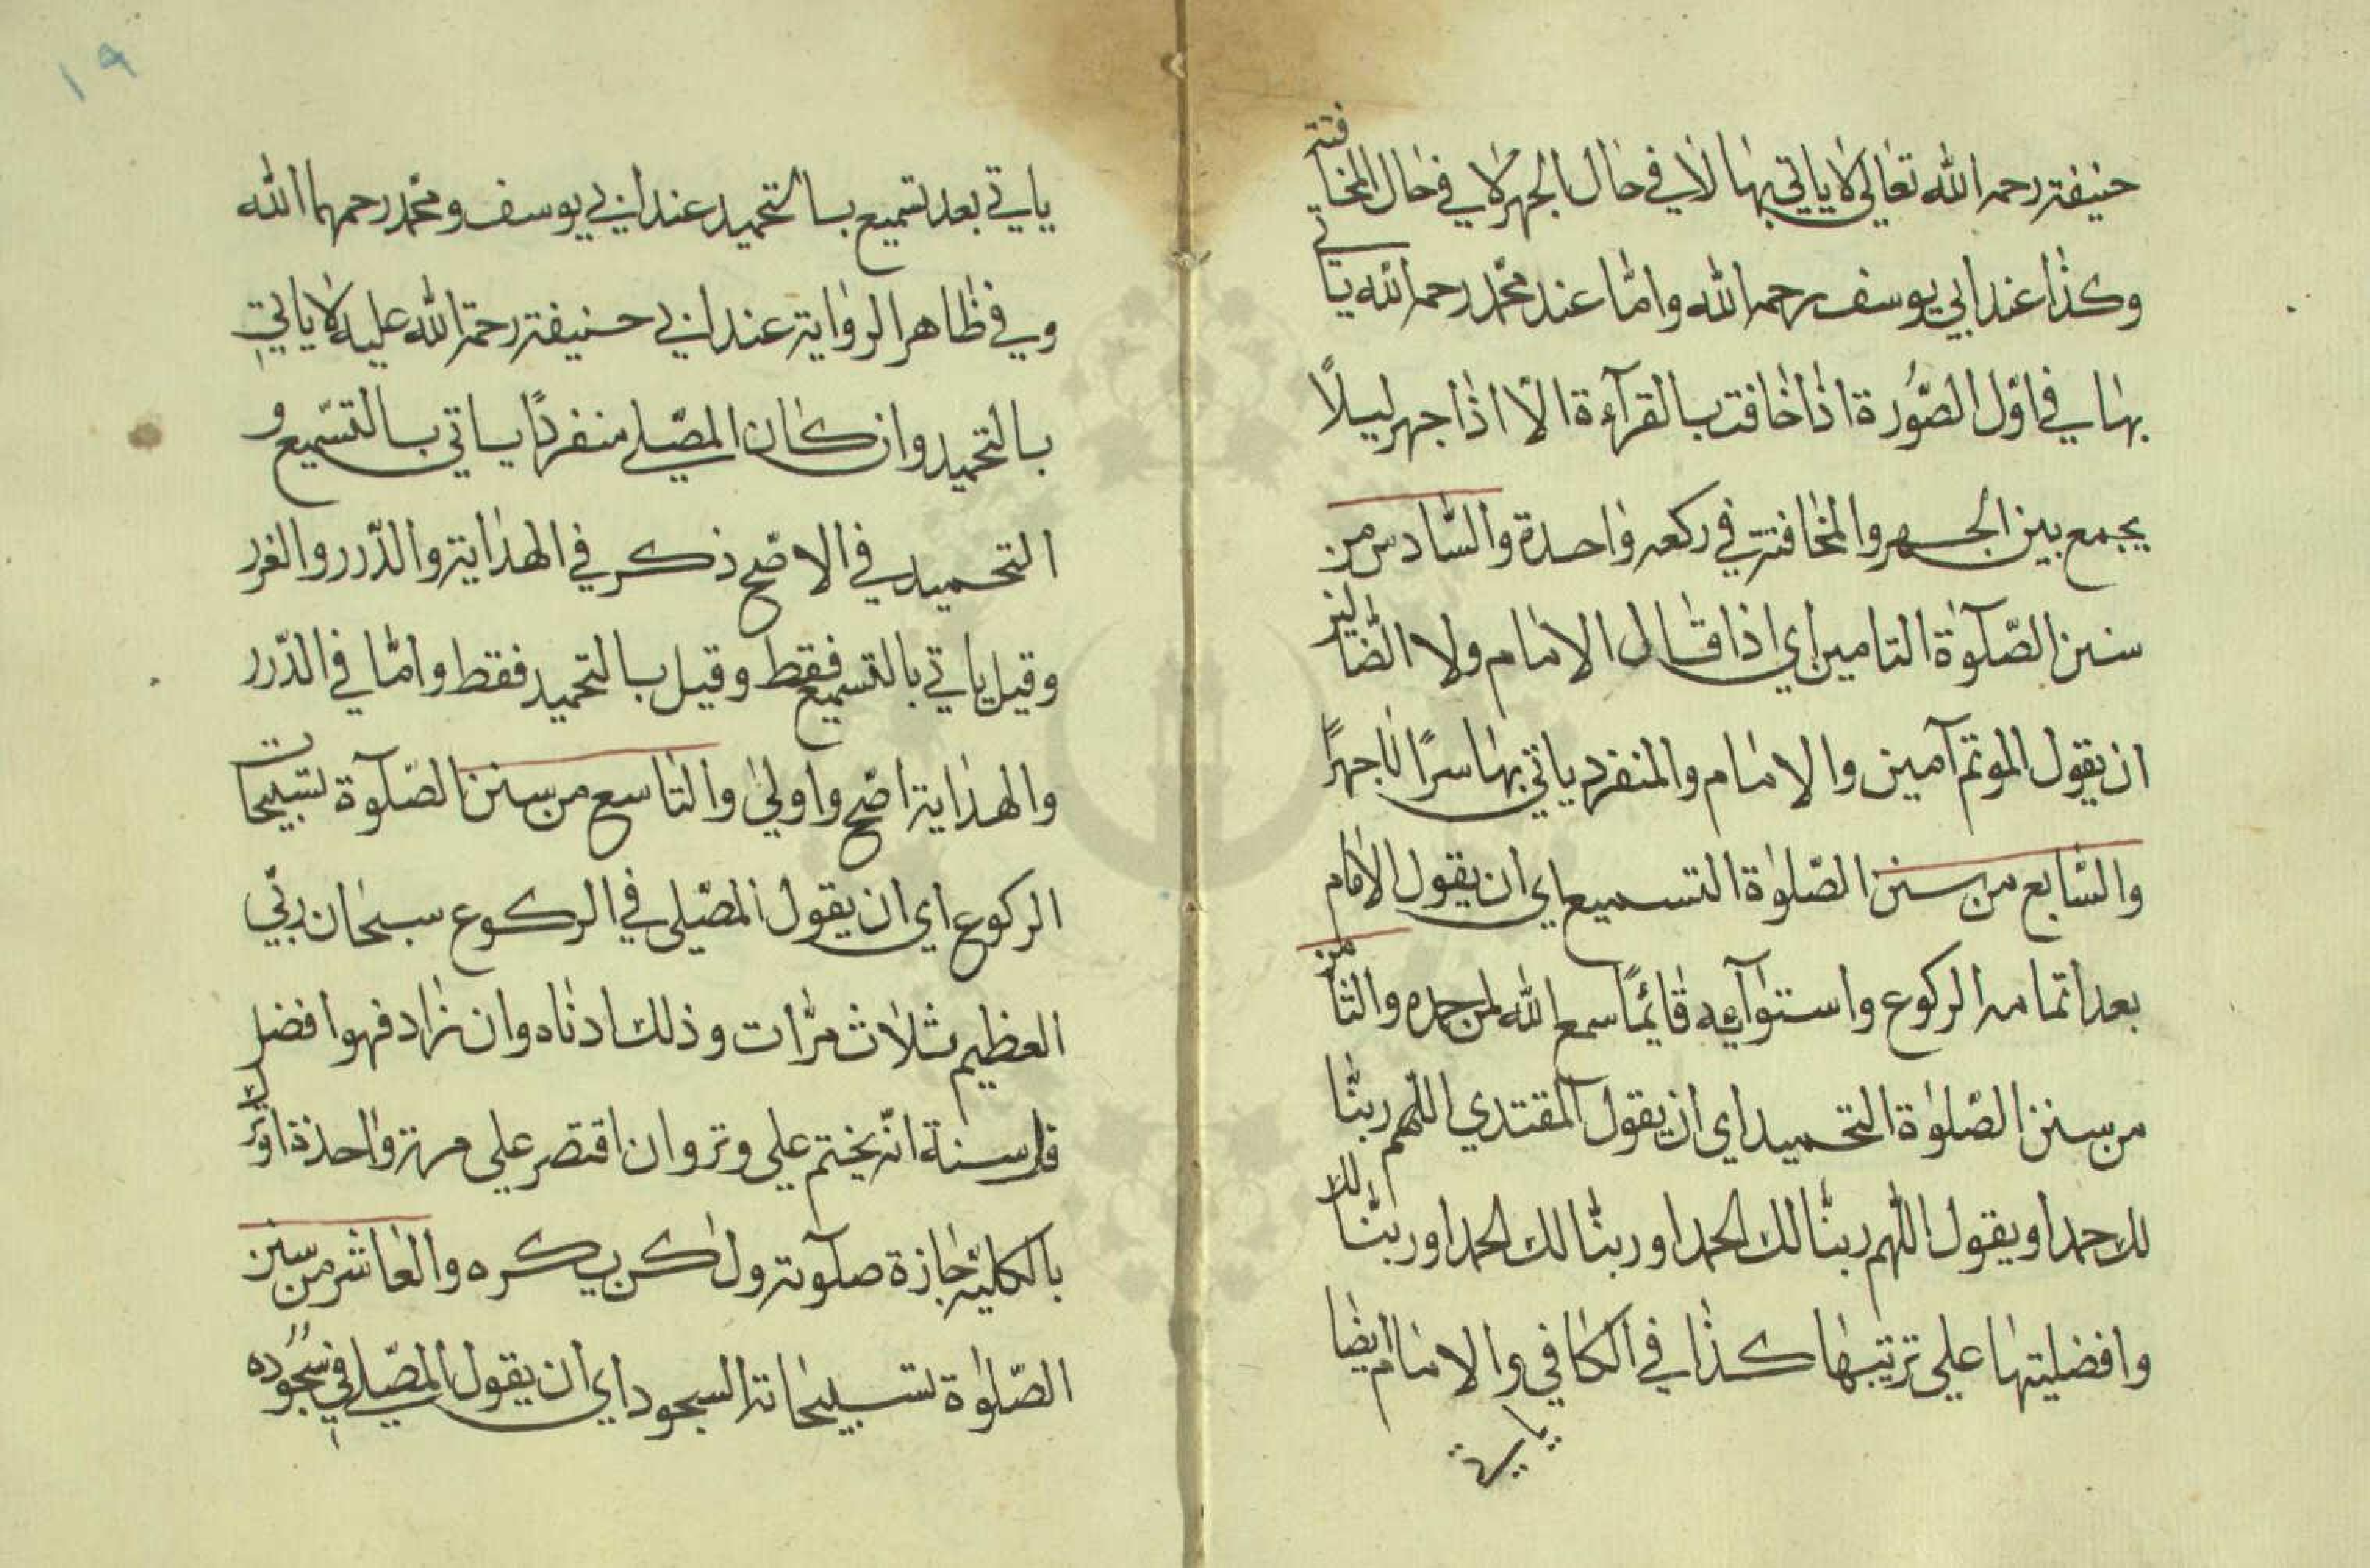 حنيفة رحمه الله تعالى لا ياتي بها لا في حال الجهر لا في حال المخافتة
وكذا عند ابي يوسف رحمه الله واما عند محمد رحمه الله ياتي
بها في اول الصورة اذا خافت بالقرآءة الا اذا جهر ليلا
يجمع بين الجهر والمخافتة في ركعه واحدة والسادس من
سنن الصلوة التامين اي اذا قال الامام ولا الضالين
ان يقول الموتم آمين والامام والمنفرد ياتي بها سرا لا جهرا
والسابع من سنن الصلوة التسميع اي ان يقول الامام
بعد اتمامه الركوع واستوآءه قايما سمع الله لمن حمده والثامن
من سنن الصلوة التحميد اي ان يقول المقتدي اللهم ربنا
لك حمد او يقول اللهم ربنا لك الحمد او ربنا لك الحمد او ربنا لك
وافضليتها على ترتيبها كذا في الكافي والامام ايضا
ياتي
١٩
ياتي بعد تسميع بالتحميد عند ابي يوسف ومحمد رحمهما الله
وفي ظاهر الرواية عند ابي حنيفة رحمة الله عليه لا ياتي
بالتحميد وان كان المصلي منفردا ياتي بالتسميع و
التحميد في الاصح ذكر في الهداية والدرر والغرر
وقيل ياتي بالتسميع فقط وقيل بالتحميد فقط واما في الدرر
والهداية اصح واولى والتاسع من سنن الصلوة تسبيحات
الركوع اي ان يقول المصلى في الركوع سبحان ربي
العظيم ثلاث مرات وذلك ادناه وان زاد فهو افضل
فلسنة انه يختم على وتر وان اقتصر على مرة واحدة او ترك
بالكلية جازة صلوته ولكن يكره والعاشر من سنن
الصلوة تسبيحاته السجود اي ان يقول المصلي في سجوده